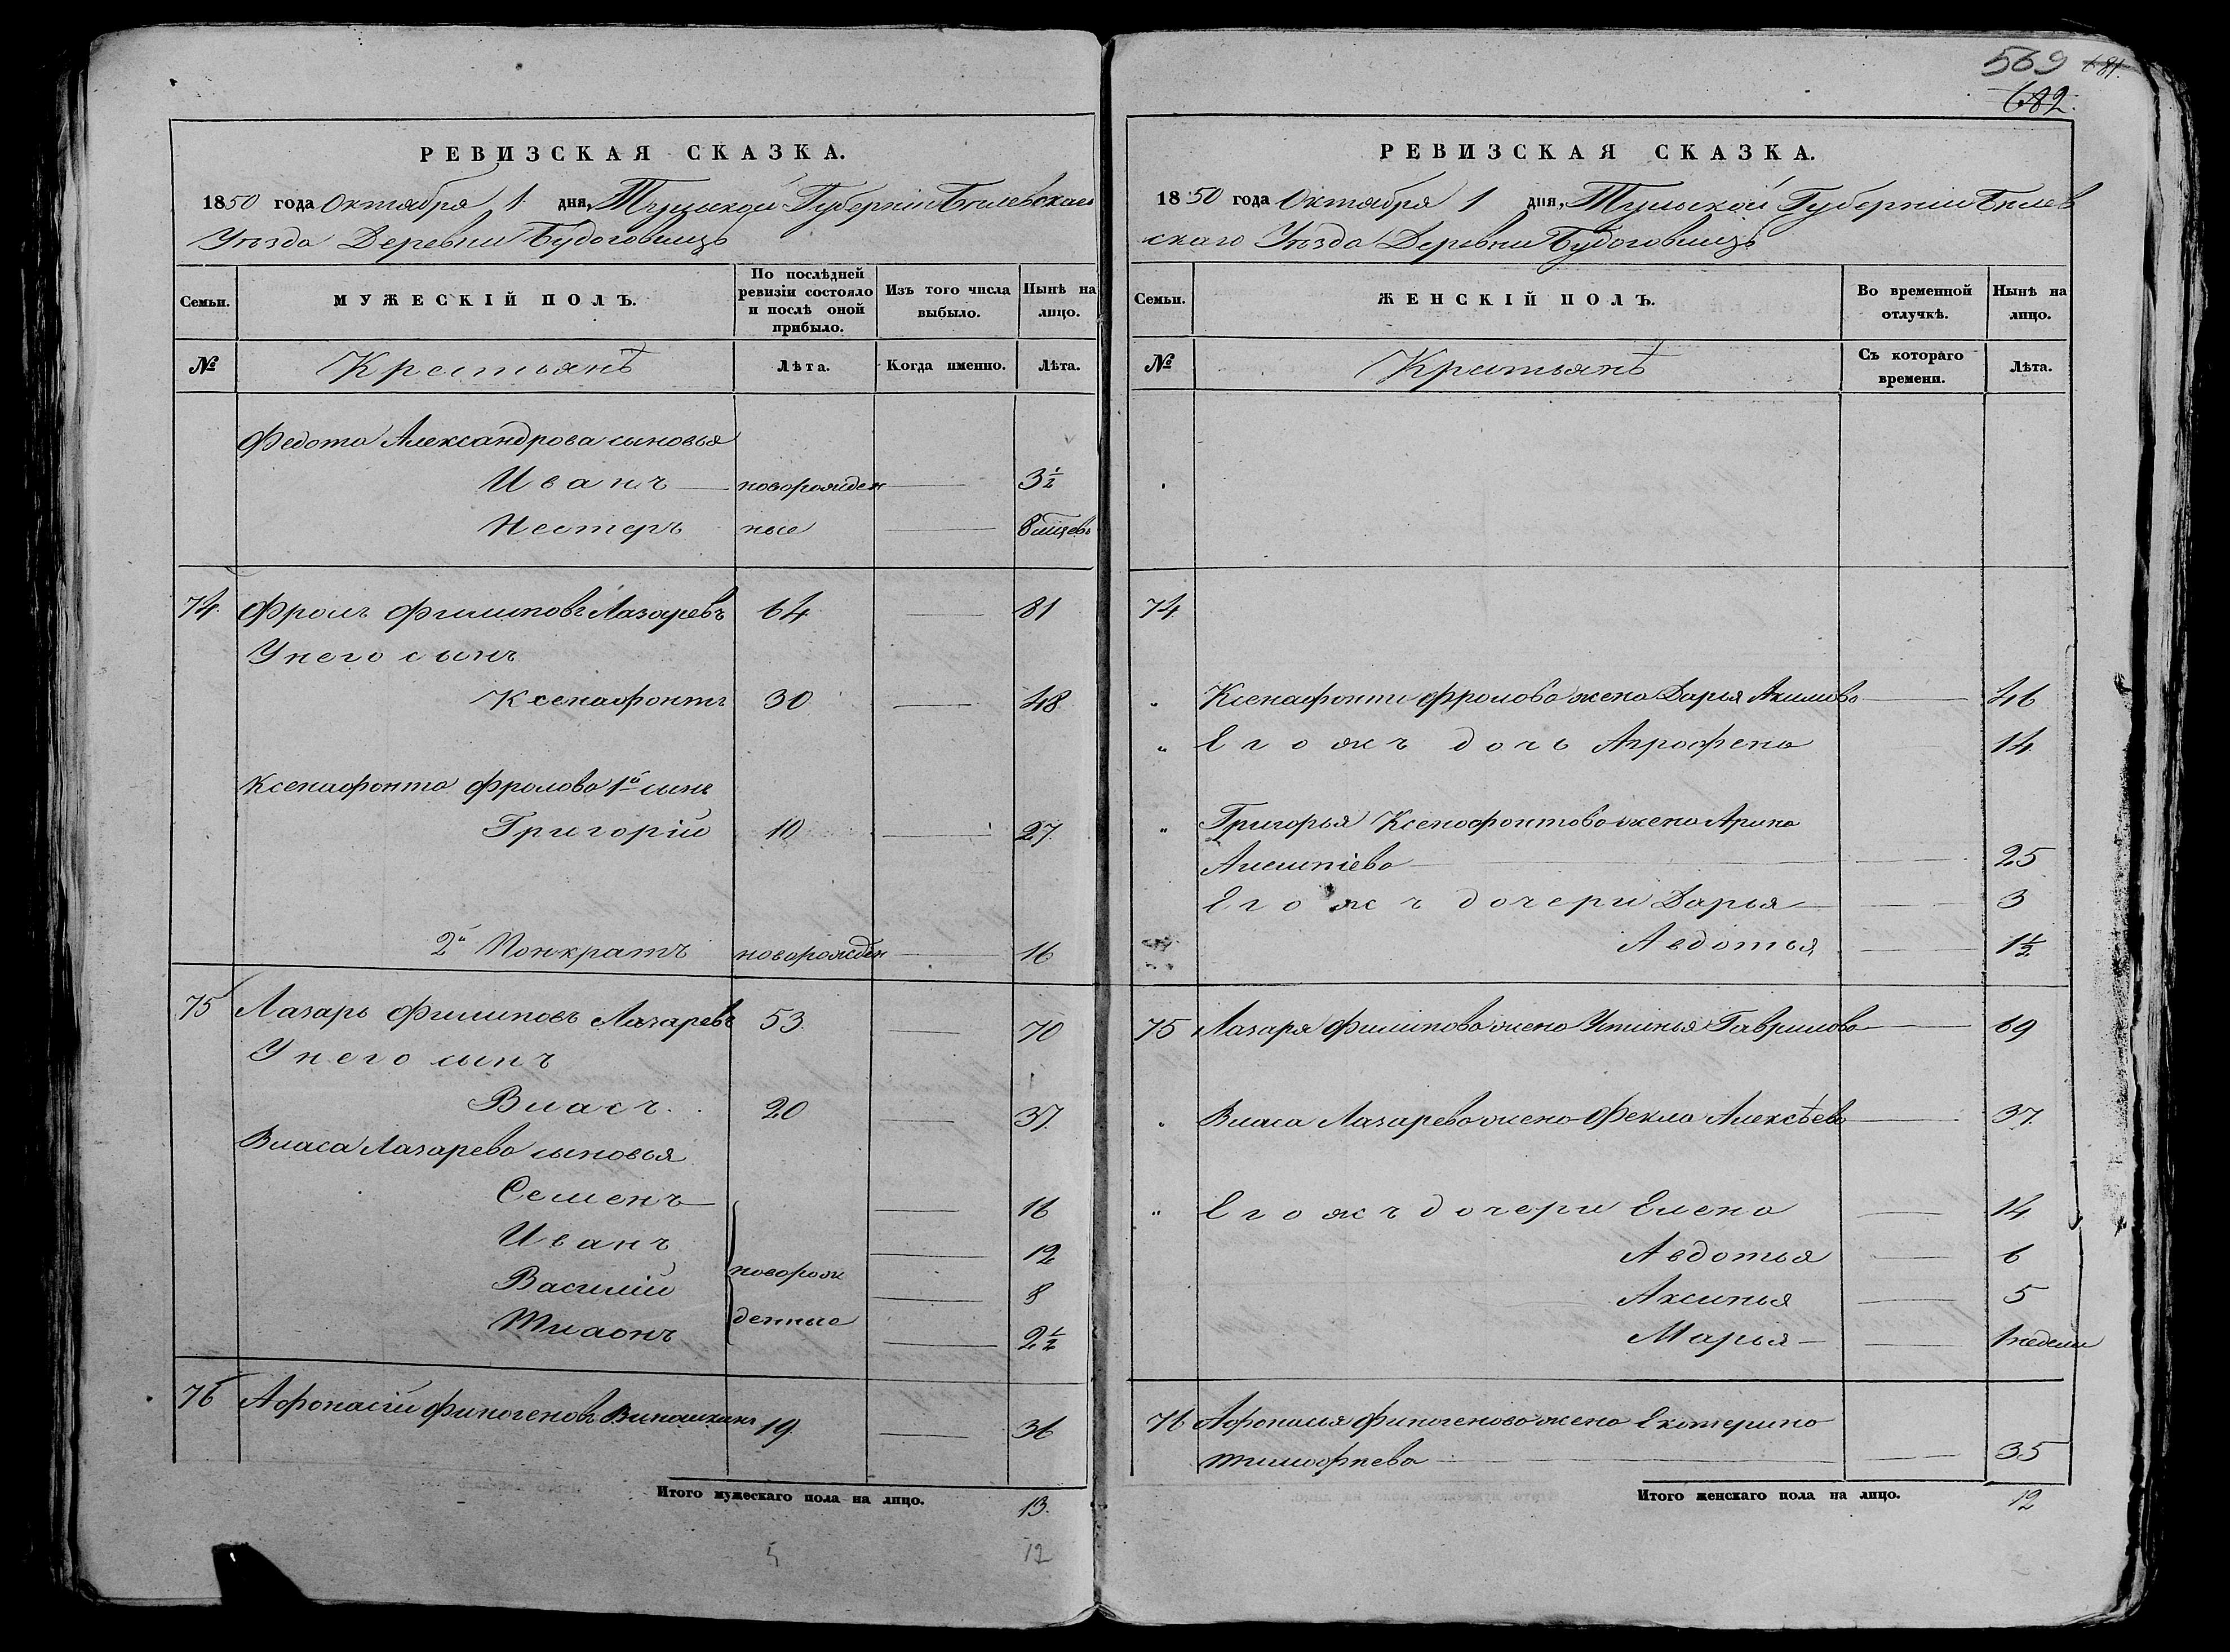 569 681.
682.
РЕВИЗСКАЯ СКАЗКА.
1850 года Октября 1 дня, Тульской Губерніи Бѣлевскаго
Уѣзда Деревни Будоговищъ
Семьи.
МУЖЕСКІЙ ПОЛЪ.
По послѣдней
ревизіи состояло
и послѣ оной
прибыло.
Изъ того числа
выбыло.
Нынѣ на
лицо.
№
Крестьянъ
Лѣта.
Когда именно.
Лѣта.
Федота Александрова сыновья
Иванъ новорожден 3½
Нестеръ ные 8 мцевъ
74 Фролъ Филиповъ Лазаревъ 64 81
У него сынъ
Ксенафонтъ 30 48
Ксенафонта Фролова 1й сынъ
Григорій 10 27
2й Понкратъ новорожден 16
75 Лазарь Филиповъ Лазаревъ 53 70
У него сынъ
Власъ 20 37
Власа Лазарева сыновья
Семенъ 16
Иванъ 12
новорож
Василій 8
денные
Тихонъ 2½
76 Афонасій Финогеновъ 19 36
Итого мужескаго пола на лицо. 13.
5 12
РЕВИЗСКАЯ СКАЗКА.
1850 года Октября 1 дня, Тульской Губерніи Бѣлев
скаго Уѣзда Деревни Будоговищъ
Семьи.
ЖЕНСКІЙ ПОЛЪ.
Во временной
отлучкѣ.
Нынѣ на
лицо.
№
Крестьянъ
Съ котораго
времени.
Лѣта.
74
" Ксенафонта Фролова жена Дарья Акимова 46
" Его жъ дочь Агрофена 14
" Григорья Ксенофонтова жена Арина
25
Его жъ дочери Дарья 3
Авдотья 1½
75 Лазаря Филипова жена Устинья Гаврилова 69
" Власа Лазарева жена Фекла Алексѣева 37
" Его жъ дочери Елена 14
Авдотья 6
Аксинья 5
Марья 1 недели
76 Афонасья Финогенова жена Екатерина
Тимофеева 35
Итого женскаго пола на лицо. 12